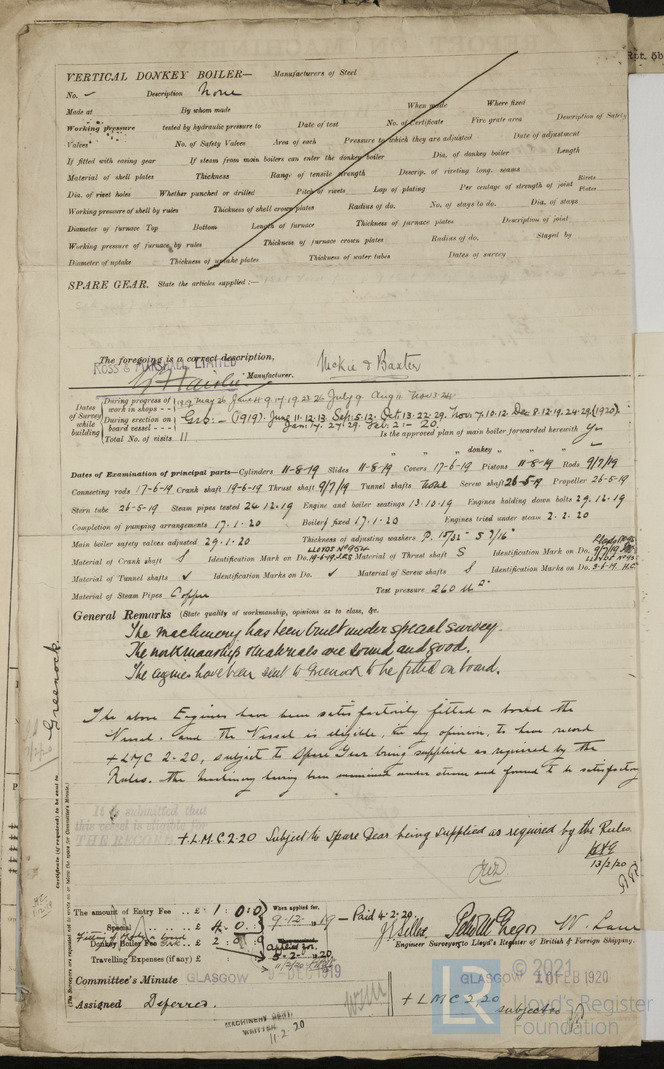 VERTICAL DONKEY BOILER— Manufacturers of Steel
No. – Description None
Made at By whom made When made Where fixed
Working pressure tested by hydraulic pressure to Date of test No. of Certificate Fire grate area Description of Safety
Valves No. of Safety Valves Area of each Pressure to which they are adjusted Date of adjustment
If fitted with easing gear If steam from main boilers can enter the donkey boiler Dia. of donkey boiler Length
Material of shell plates Thickness Range of tensile strength Descrip. of riveting long. seams
Dia. of rivet holes Whether punched or drilled Pitch of rivets Lap of plating Per centage of strength of joint Rivets Plates
Working pressure of shell by rules Thickness of shell crown plates Radius of do. No. of stays to do. Dia. of stays
Diameter of furnace Top Bottom Length of furnace Thickness of furnace plates Description of joint
Working pressure of furnace by rules Thickness of furnace crown plates Radius of do. Stayed by
Diameter of uptake Thickness of uptake plates Thickness of water tubes Dates of survey
SPARE GEAR. State the articles supplied :—
The foregoing is a correct description,
ROSS & MARSHALL LIMITED McKie & Baxter
Manufacturer.
Dates of Survey while building
During progress of work in shops - - 1919 May 26 June 4. 9. 17. 19. 23. 26 July 9. Aug 11 Nov. 3. 24.
During erection on board vessel - - - Grk:– (1919). June 11. 12. 13. Sept. 5. 12. Oct. 13. 22. 29. Nov. 7. 10. 12. Dec. 9. 12. 19. 24. 29. (1920).
Jan. 17. 27. 29. Feb. 2. – 20.
Total No. of visits 11 Is the approved plan of main boiler forwarded herewith Yes
" " " donkey " " "
Dates of Examination of principal parts—Cylinders 11-8-19 Slides 11-8-19 Covers 17-6-19 Pistons 11-8-19 Rods 9/7/19
Connecting rods 17-6-19 Crank shaft 19-6-19 Thrust shaft 9/7/19 Tunnel shafts none Screw shaft 26-5-19 Propeller 26-5-19
Stern tube 26-5-19 Steam pipes tested 24.12.19 Engine and boiler seatings 13.10.19 Engines holding down bolts 29.12.19
Completion of pumping arrangements 17.1.20 Boilers fixed 17.1.20 Engines tried under steam 2.2.20
Main boiler safety valves adjusted 29.1.20 Thickness of adjusting washers P. 15/32" S 7/16"
Material of Crank shaft S Identification Mark on Do. LLOYDS No 954 19-6-19 Material of Thrust shaft S Identification Mark on Do. 9/7/19
Material of Tunnel shafts ✓ Identification Marks on Do. ✓ Material of Screw shafts S Identification Marks on Do. 3-6-19 H.C
Material of Steam Pipes Copper Test pressure 260 lbs
General Remarks (State quality of workmanship, opinions as to class, &c.
The machinery has been built under special survey.
The workmanship & materials are sound and good.
The engines have been sent to Greenock to be fitted on board.
The above Engines have been satisfactorily fitted on board the
Vessel. and the Vessel is eligible, in my opinion, to have record
+LMC 2.20, subject to Spare Gear being supplied as required by the
Rules. The Machinery having been examined under steam and found to be satisfactory
It is submitted that
this vessel is eligible for
THE RECORD
+L.M.C. 2.20 Subject to Spare Gear being supplied as required by the Rules.
13/2/20
Greenock.
Certificate (if required) to be sent to
(The Surveyors are requested not to write on or below the space for Committee's Minute.)
The amount of Entry Fee .. £ 1 : 0 : 0 When applied for,
Special £ 4 : 0 : 9.12.1919 – Paid 4.2.20.
Donkey Boiler Fee £ 2 : 0 : 9 applied for.
Travelling Expenses (if any) £ : : 5-2-1920
11/2/20
Engineer Surveyor to Lloyd's Register of British & Foreign Shipping.
Committee's Minute GLASGOW DEC 1919 GLASGOW 10 FEB 1920
Assigned Deferred. + LMC 2.20
subject to
MACHINERY CERT.
WRITTEN 11.2.20
LR
© 2021
Lloyd's Register
Foundation